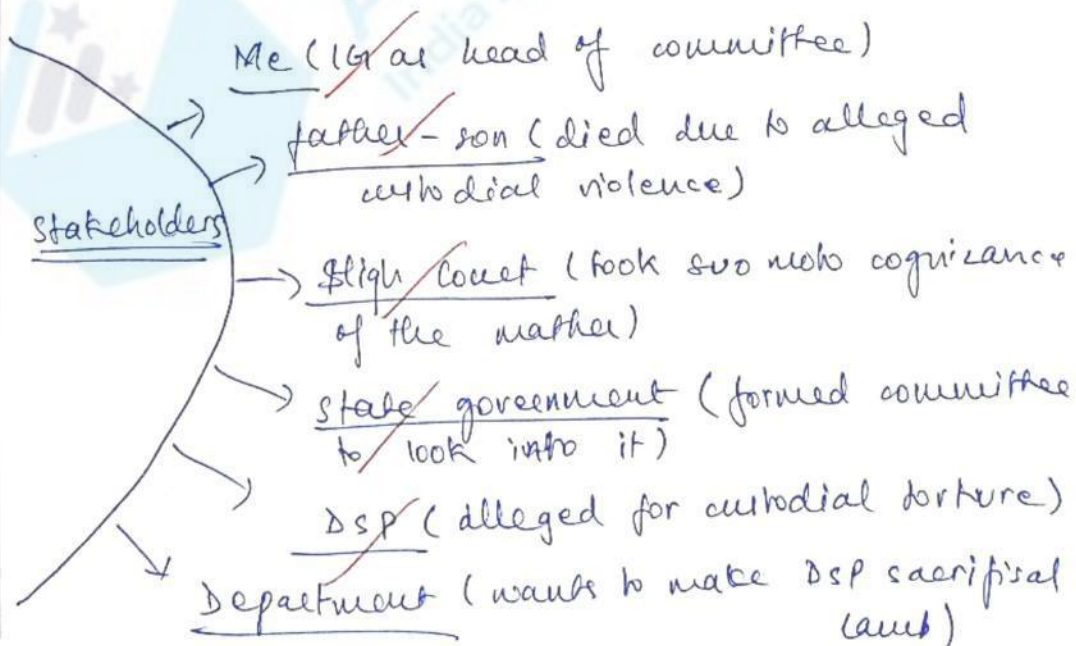 Me (IG as head of committee)
father-son (died due to alleged
custodial violence)
Stakeholders
High Court (took suo moto cognizance
of the matter)
State government (formed committee
to look into it)
DSP (alleged for custodial torture)
Department (wants to make DSP sacrifisal
lamb)